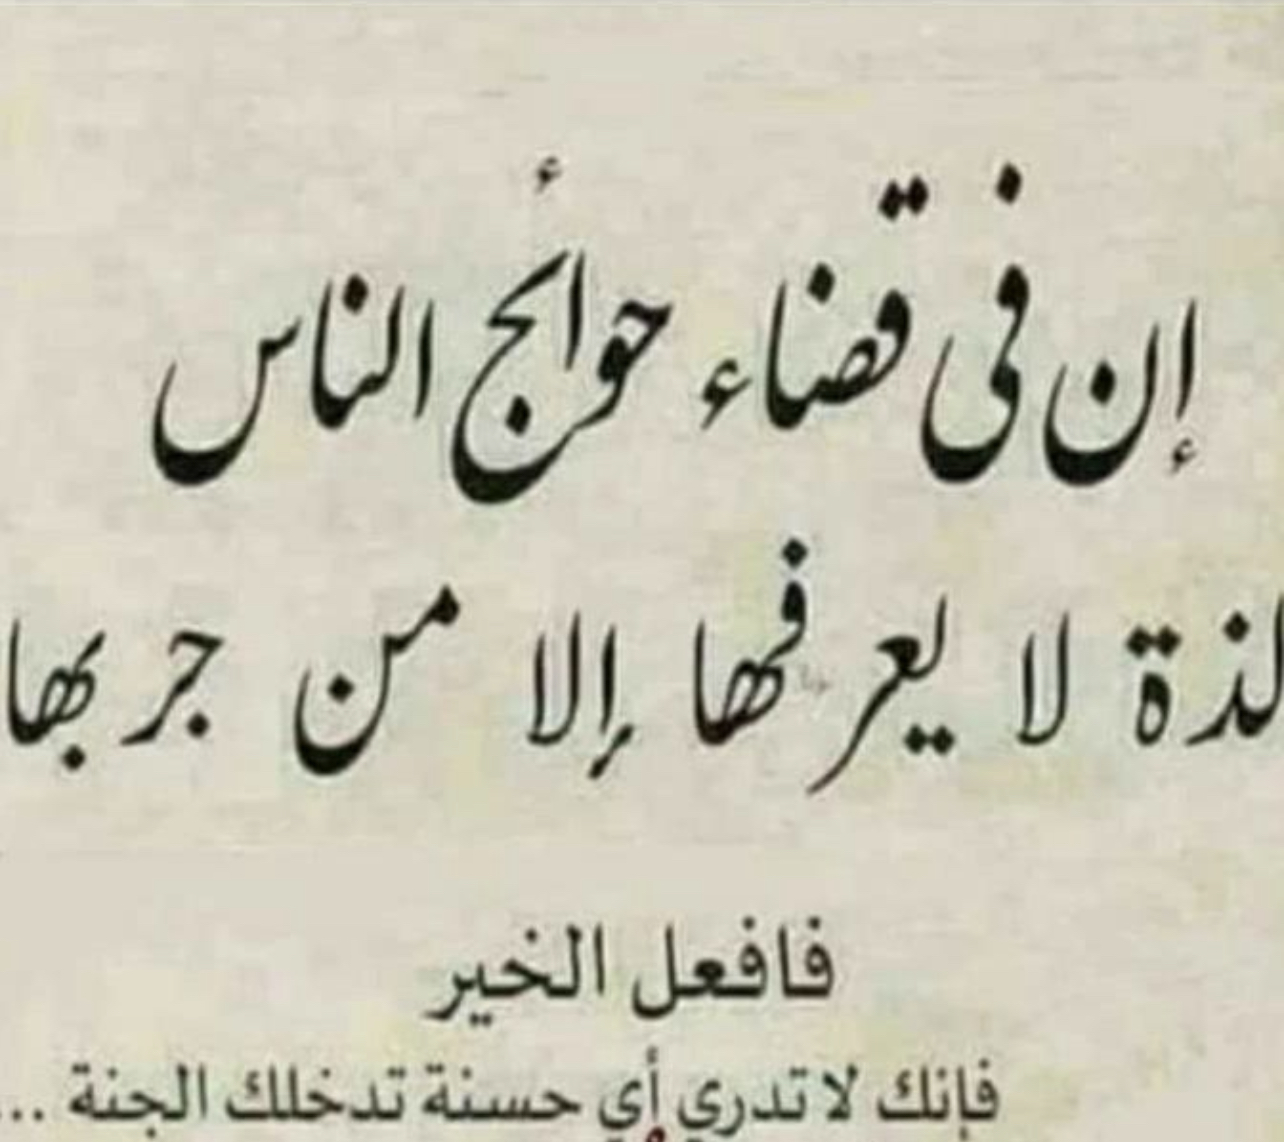 إن في قضاء حوائج الناس
لذة لا يعرفها إلا من جربها
فافعل الخير
فإنك لا تدري أي حسنة تدخلك الجنة ...